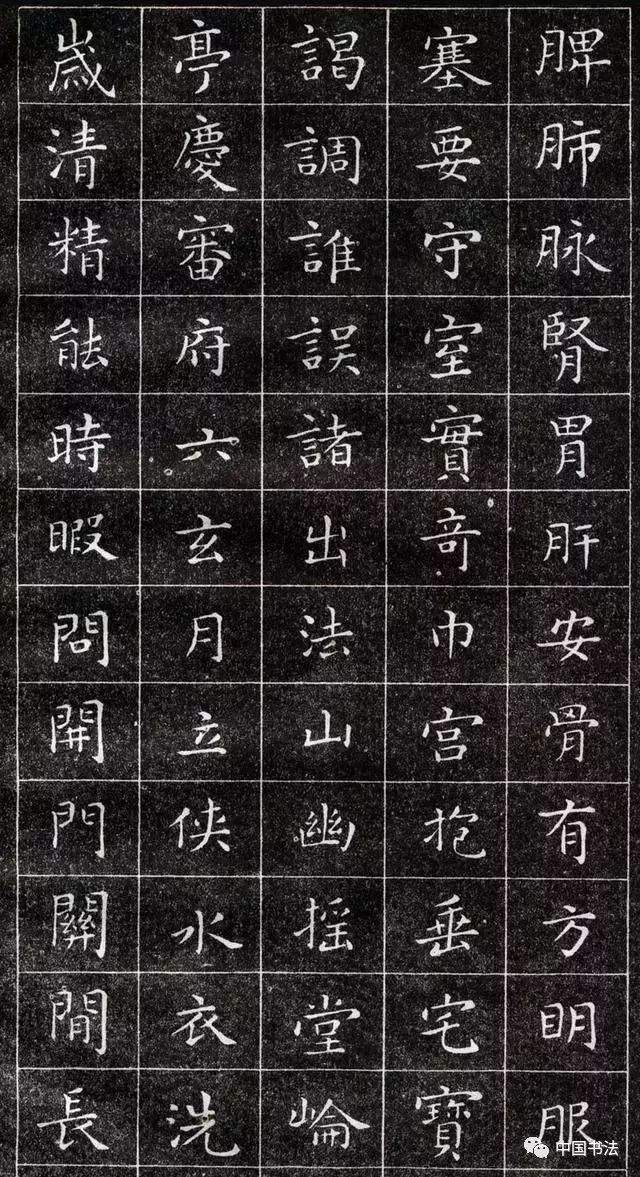 脾肺脉腎胃肝安骨有方明服
塞要守室實奇巾宫抱垂宅寶
謁調誰誤諸出法山幽摇堂崘
亭慶審府六玄月立侠水衣洗
歲清精能時暇問開門關閒長
中国书法